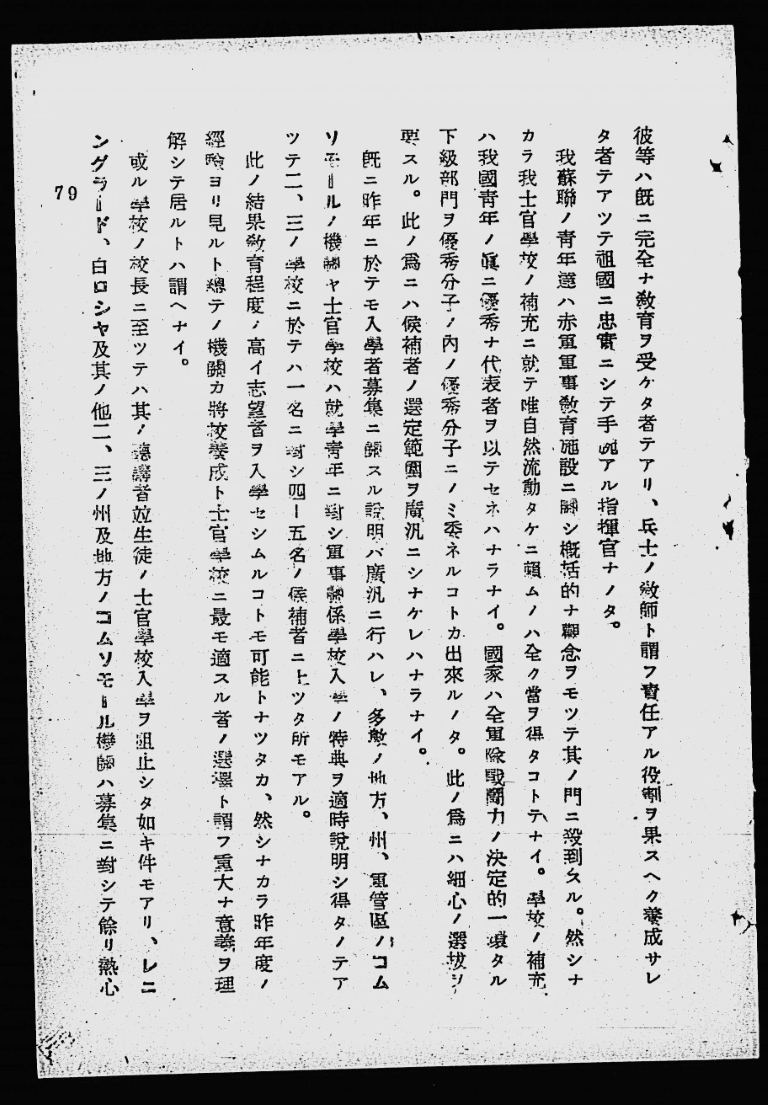 彼等ハ既ニ完全ナ敎育ヲ受ケタ者テアリ、兵士ノ敎師ト謂フ責任アル役割ヲ果スヘク養成サレ
タ者テアツテ祖國ニ忠實ニシテ手腕アル指揮官ナノタ。
我蘇聯ノ青年達ハ赤軍軍事敎育施設ニ關シ概括的ナ觀念ヲモツテ其ノ門ニ殺到スル。然シナ
カラ我士官學校ノ補充ニ就テ唯自然流動タケニ賴ムノハ全ク當ヲ得タコトテナイ。學校ノ補充
ハ我國青年ノ眞ニ優秀ナ代表者ヲ以テセネハナラナイ。國家ハ全軍隊戰鬪力ノ決定的一環タル
下級部門ヲ優秀分子ノ內ノ優秀分子ニノミ委ネルコトカ出來ルノタ。此ノ爲ニハ細心ノ選拔ヲ
要スル。此ノ爲ニハ候補者ノ選定範圍ヲ廣汎ニシナケレハナラナイ。
既ニ昨年ニ於テモ入學者募集ニ關スル說明バ廣汎ニ行ハレ、多數ノ地方、州、軍管區ノコム
ソモールノ機關ヤ士官學校ハ就學青年ニ對シ軍事關係學校入學ノ特典ヲ適時說明シ得タノテア
ツテ二、三ノ學校ニ於テハ一名ニ對シ四ー五名ノ候補者ニ上ツタ所モアル。
此ノ結果敎育程度ノ高イ志望者ヲ入學セシムルコトモ可能トナツタカ、然シナカラ昨年度ノ
經驗ヨリ見ルト總テノ機關カ將校養成ト士官學校ニ最モ適スル者ノ選擇ト謂フ重大ナ意義ヲ理
解シテ居ルトハ謂ヘナイ。
或ル學校ノ校長ニ至ツテハ其ノ聽講者竝生徒ノ士官學校入學ヲ阻止シタ如キ件モアリ、レニ
ングラード、白ロシヤ及其ノ他二、三ノ州及地方ノコムソモール機關ハ募集ニ對シテ餘リ熱心
79